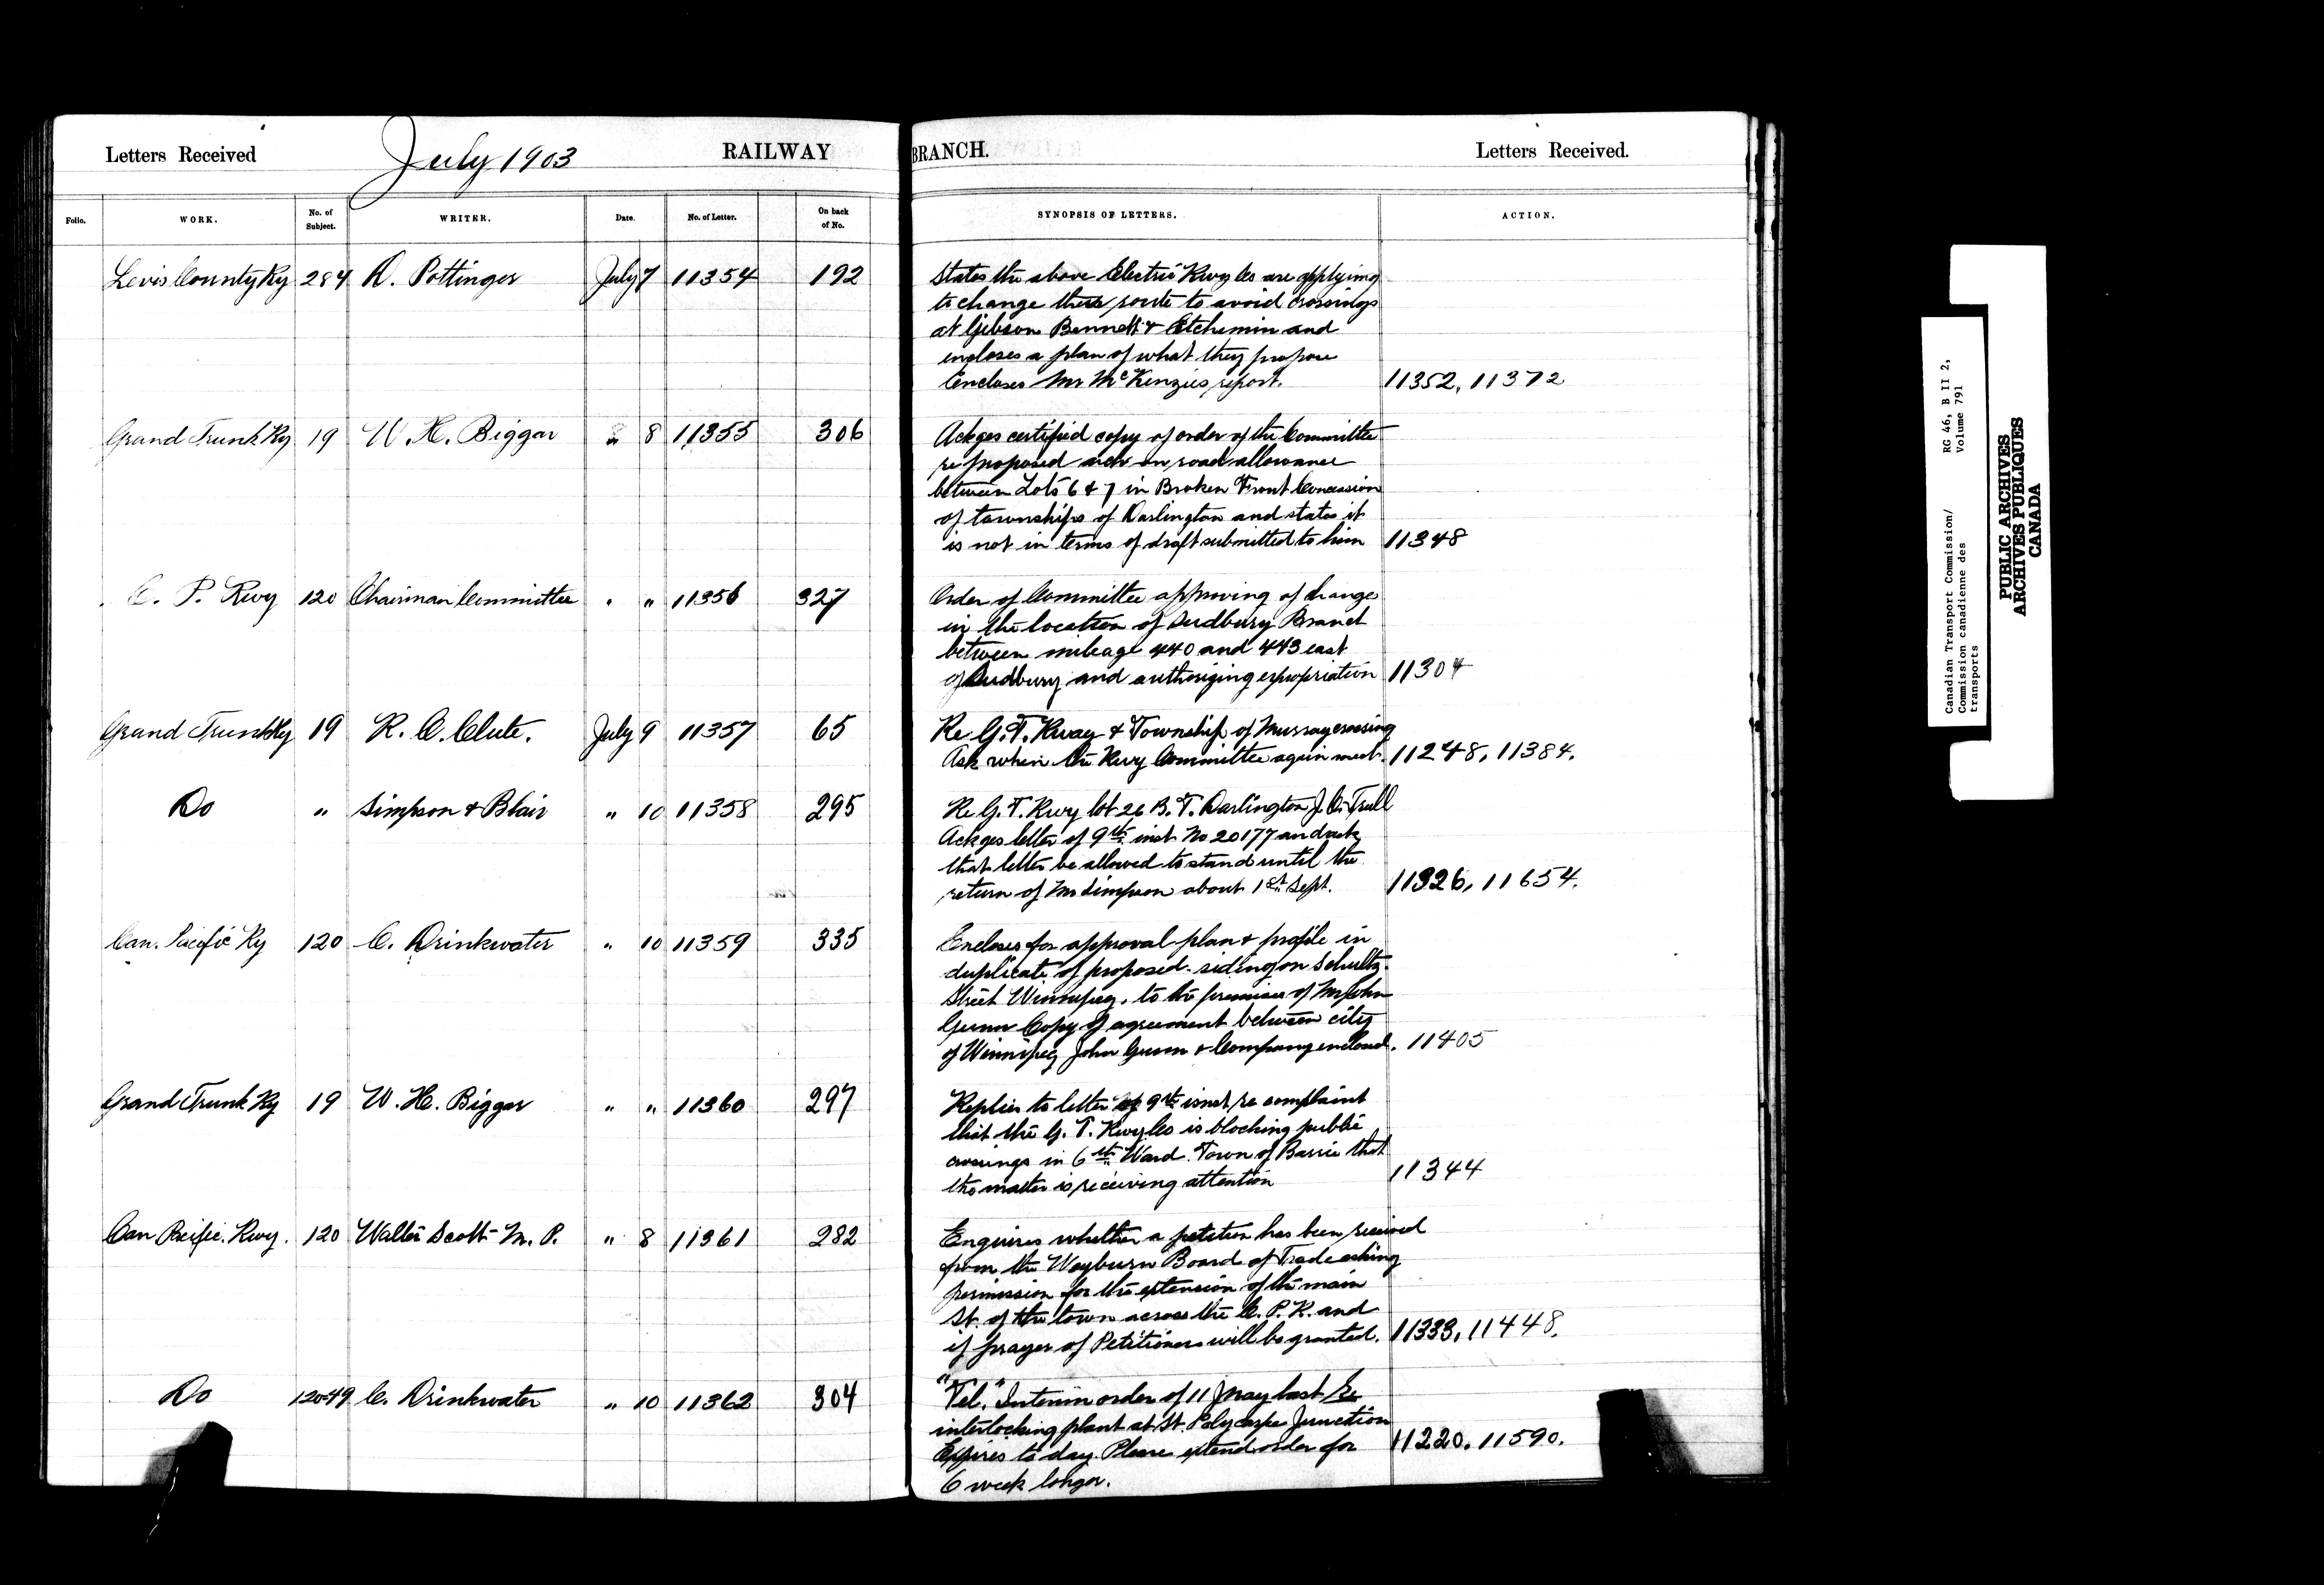 Letters Received July 1903 RAILWAY BRANCH. Letters Received.
Folio. WORK. No. of Subject. WRITER. Date. No. of Letter. On back of No. SYNOPSIS OF LETTERS. ACTION.
Levis County Ry 284 D. Pottinger July 7 11354 192 States the above Electric Rwy Co are applying
to change their route to avoid crossings
at Gibson Bennett & Etchemin and
encloses a plan of what they propose
Encloses Mr McKenzies report. 11352, 11372
Grand Trunk Ry 19 W. H. Biggar " 8 11355 306 Ackges certified copy of order of the Committee
re proposed arch on road allowance
between Lots 6 & 7 in Broken Front Concession
of townships of Darlington and states it
is not in terms of draft submitted to him 11348
C. P. Rwy 120 Chairman Committee " " 11356 327 Order of Committee approving of change
in the location of Sudbury Branch
between mileage 440 and 443 east
of Sudbury and authorizing expropriation 11304
Grand Trunk Ry 19 R. C. Clute. July 9 11357 65 Re G. T. Rway & Township of Murray crossing
Ask when the Rwy Committee again meet. 11248, 11384.
Do " Simpson & Blair " 10 11358 295 Re G. T. Rwy lot 26 B. F. Darlington J. C. Trull
Ackges letter of 9th inst No 20177 and ask
that letter be allowed to stand until the
return of Mr Simpson about 1st Sept. 11326, 11654.
Can. Pacific Ry 120 C. Drinkwater " 10 11359 335 Encloses for approval plan & profile in
duplicate of proposed siding on Schultz
Street Winnipeg, to the premises of Mr John
Gunn Copy of agreement between city
of Winnipeg John Gunn & Company enclosed. 11405
Grand Trunk Ry 19 W. H. Biggar " " 11360 297 Replies to letter of 9th inst re complaint
that the G. T. Rwy Co is blocking public
crossings in 6th Ward Town of Barrie that
the matter is receiving attention 11344
Can Pacific. Rwy. 120 Walter Scott M. P. " 8 11361 282 Enquires whether a petition has been received
from the Weyburn Board of Trade asking
permission for the extension of the main
St. of the town across the C. P. R. and
if prayer of Petitioners will be granted. 11333, 11448.
Do 120-49 C. Drinkwater " 10 11362 304 "Tel." Interim order of 11 May last re
interlocking plant at St. Polycarpe Junction
Expires to day. Please extend order for 11220, 11590.
6 week longer.
Canadian Transport Commission/ RG 46, B II 2,
Commission canadienne des Volume 791
transports
PUBLIC ARCHIVES
ARCHIVES PUBLIQUES
CANADA